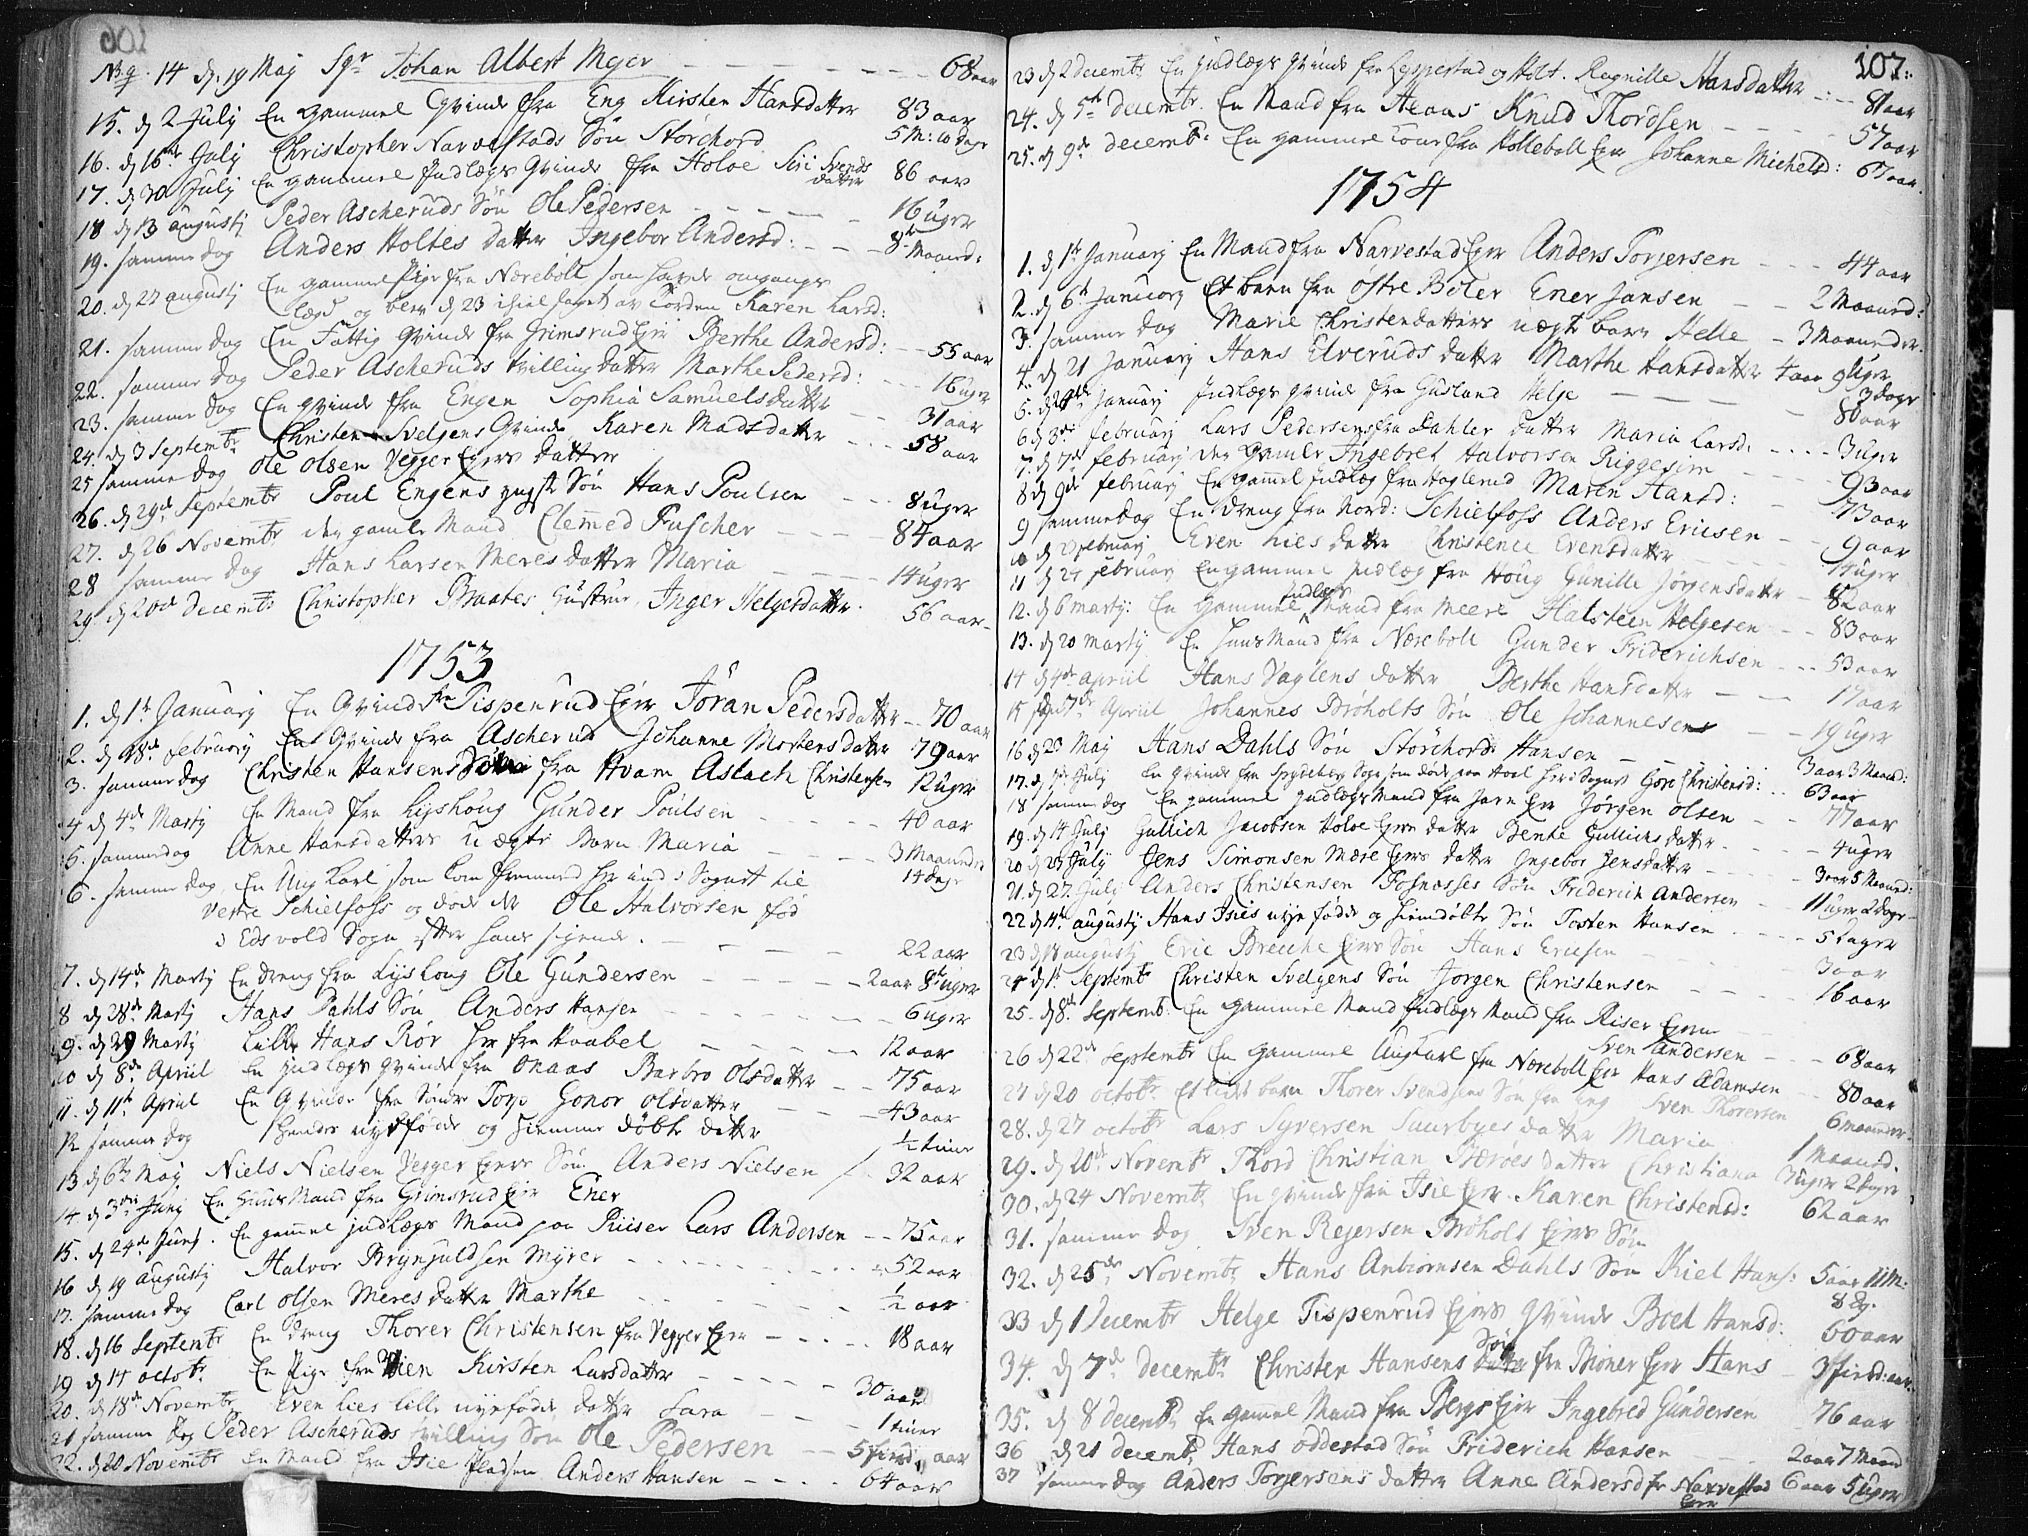 14 d. 19 Maj Sgr Johan Albert Mejer 68 aar
15. d 2 July En gammel Qvinde fra Eng Kirsten Hansdatter 83 aar
16. d 16 July Christopher Narvestads Søn Storchord 5 M: 10 dage
17. d 30 July En gammel Indlægs Qvinde fra Holoe Siri Svends datter 86 aar
18 d 13 augustj Peder Ascheruds Søn Ole Pedersen 16 uger
19. samme dag Anders Holtes datter Ingebor Andersd: 8 Maaned:
20. d 27 augustj En gammel Pige fra Nærebøll som havde omgangs
lægd og blev d 23 ihiel slaget av Torden Karen Larsd:
21. samme dag En Fattig Qvinde fra Grimsrud Eje Berthe Andersd: 55 aar
22. samme dag Peder Ascheruds tvilling datter Marthe Pedersd: 16 uger
23. samme dag En Qvinde fra Engen Sophia Samuelsdatter 31 aar
24. d 3 Septembr Christen Svelgens Qvinde Karen Madsdatter 58 aar
25 samme dag Ole Olsen Vegger Ejers datter
26. d 29d Septembr Poul Engens yngste Søn Hans Poulsen 8 uger
27. d 26 Novembr den gamle Mand Clemmed Fuscher 84 aar
28 samme dag Hans Larsen Meres datter Maria 14 uger
29. d 20d Decembr Christopher Braates Hustrue, Inger Helgesdatter. 56 aar
1753
1. d 1t January En Qvinde fra Tispenrud Ejer Jöran Pedersdatter 70 aar
2. d 18d february En Qvinde fra Ascherud Johanne Mortensdatter 79 aar
3. samme dag Christen Hansens Søn fra Hvam Aslach Christensen 12 uger
4 d 4d Martj En Mand fra Lyshoug Gunder Poulsen 40 aar
5. samme dag Anne Hansdatters u ægte Barn Maria 3 Maaneder 14 dage
6. samme dag, En Ung Karl som kom fremmed her ind i Sognet til
Vestre Schielfoss og døde der Ole Halvorsen fød
i Edsvold Sogn efter hans sigende. 22 aar
7. d 14d Martj En dreng fra Lyshoug Ole Gundersen 2 aar 8 uger
8 d 28d Martj Hans Dahls Søn Anders Hansen 6 uger
9. d 29 Martj Lille Hans Rör her fra 12 aar
10 d 8d April En Indlægs Qvinde fra Onaas Barbro Olsdatter 75 aar
11. d 11t April En Qvinde fra Søndre Torp Gonor Olsdatter 43 aar
12 samme dag Hendes nyefødde og hiemme döbte datter ½ time
13 d 6t Maj Niels Nielsen Vegger Ejers Søn Anders Nielsen 32 aar
14 d 3die Junj En Huus Mand fra Grimsrud Eje Ener
15. d 24d Junj. En gamel indlægs Mand paa Riiser Lars Andersen 75 aar
16 d 19 augustj Halvor Brynjuldsen Myrer 52 aar
17. samme dag Carl Olsen Meres datter Marthe ½ aar
18. d 16 Septembr En dreng Thorer Christensen fra Vegger Ejer 18 aar
19 d 14 octobr. En Pige fra Vien Kirsten Larsdatter 30 aar
20. d 18d Novembr Even Lies lille nyefødde datter Sara 1 time
21 samme dag Peder Ascheruds tvilling Søn Ole Pedersen 5 fierd: aar
22. d 20 Novembr En Mand fra Isie Pladsen Anders Hansen 64 aar
107.
23 d 2 decembr En Indlægs Qvinde fra Leppestad og Holt. Ragnille Hansdatter 81 aar
24. d 5t decembr. En Mand fra Aaraas Knud Thordsen 57 aar
25. d 9d decembr. En gammel Kone fra Holleboll Ejer Johanne Michelsd: 67 aar.
1754
1. d 1t January En Mand fra Narvestad Ejer Anders Torjersen 44 aar
2. d 6t January Et barn fra østre Böler Ener Jansen 2 Maaned:
3. samme dag Marie Christensdatters uægte barn Helle 3 Maaneder.
4. d 21 January Hans Elveruds datter Marthe Hansdatter 4 aar 9 Uger 3 dage
5. d January Indlægs qvinde fra Gusland Helje 80 aar
6 d 3die february Lars Pedersens fra Dahler datter Maria Larsd: 3 uger
7. d 7d february den gamle Ingebret Halvorsen Riggesim 93 aar
8 d 9d february En gamel Indlæg fra Haglerud Maren Hansd: 73 aar
9 samme dag En dreng fra Nord: Schielfoss Anders Ericsen 9 aar
10 d february Even Lies datter Christence Evensdatter 14 uger
11 d 27 february En gammel Indlæg fra Houg Gunille Jørgensdatter 82 aar
12. d 6 martj: En Gammel indlægs Mand fra Meere Halsteen Helgesen 83 aar
13. d 20 martj En huus Mand fra Nærebøll Gunder Friderichsen 53 aar
14 d 4d april Hans Vaglens datter Berthe Hansdatter 17 aar
15 d 7d April Johannes Brøholts Søn Ole Johannesen 19 uger
16 d 23 Maj Hans Dahls Søn Storchord Hansen 3 aar 3 Maaned:
17. d July En Qvinde fra Spydeberg Sogn som døde paa Hoel her i Sognet Gore Christensd: 63 aar
18 samme dag En gammel indlægs Mand fra Jarn Ejer Jørgen Olsen 77 aar
19. d 14 July Gullich Jacobsen Holoe Ejers datter Bente Gullichs datter 4 uger
20 d 23 July Jens Simonsen Mære Ejers datter Ingebor Jensdatter 3 aar 5 Maaned:
21. d 27. July Anders Christensen Fosnæsses Søn Friderich Andersen 11 uger 2 dage
22 d 4t augustj Hans Isies nye fødde og hiemdöbte Søn Tosten Hansen 5 dager
23 d 18 augustj Eric Breche Ejers Søn Hans Ericsen 3 aar
24 d 1t Septembr Christen Svelgens Søn Jørgen Christensen 16 aar
25. d 8t Septembr. En gammel Mand Indlægs Mand fra Riser Ejer Sven Andersen 68 aar
26 d 22d Septembr En gammel Ungkarl fra Nærebøll Ejer Hans Adamsen 80 aar
27 d 20 octobr. Et lidet barn Thorer Svendsens Søn fra Eng Sven Thorersen 6 maaneder
28. d 27 octobr Lars Syversen Suurbyes datter Maria 1 Maaned.
29. d 20d Novembr Thord Christian Bærøes datter Christiana 3 uger 2 dage
30. d 24 Novembr En Qvinde fra Isie Ejer. Karen Christensd: 62 aar
31. samme dag Sven Rejersen Brøholt Ejers Søn
32. d 25d Novembr Hans Anbiørnsen Dahls Søn Kiel Hans: 5 aar 11 M: 8 dg.
33 d 1 Decembr Helge Tispenrud Ejers Qvinde Boel Hansd: 60 aar
34. d 7d decembr Christen Hansens Søn fra Broner Ejer Hans 3 fierd: aar.
35. d 8 decembr En gamel Mand fra Bergs Ejer Ingebred Gundersen 76 aar
36 d 21 decembr Hans Oddestad Søn Friderich Hansen 2 aar 7 Maaned
37 samme dag Anders Torjersens datter Anne Andersd fr Narvestad Ejer 6 aar 5 Uger